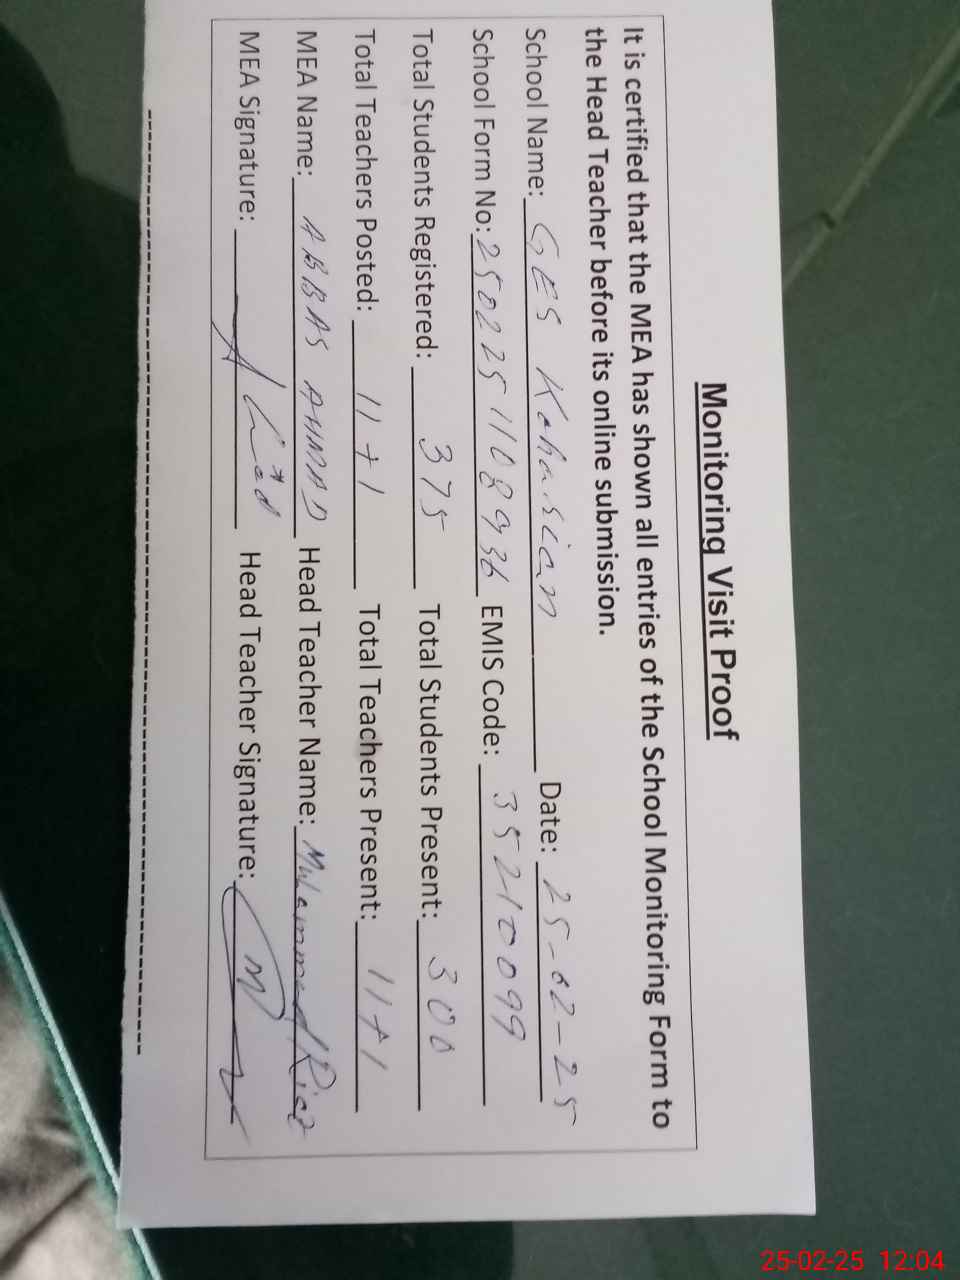 Monitoring Visit Proof
It is certified that the MEA has shown all entries of the School Monitoring Form to
the Head Teacher before its online submission.
School Name: GES Keharican Date: 25-02-25
School Form No: 2502251108936 EMIS Code: 35210099
Total Students Registered: 375 Total Students Present: 300
Total Teachers Posted: 11+1 Total Teachers Present: 11+1
MEA Name: ABBAS AHMAD Head Teacher Name: Muhammad Riaz
MEA Signature: Head Teacher Signature:
25-02-25 12:04